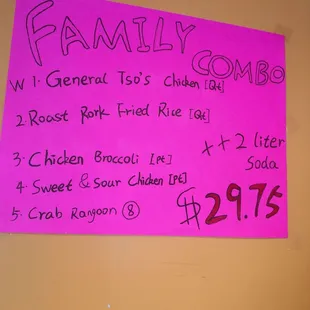 FAMILY
COMBO
W 1. General Tso's Chicken [Qt]
2. Roast Pork Fried Rice [Qt]
3. Chicken Broccoli [Pt]
4. Sweet & Sour Chicken [Pt]
5. Crab Rangoon ⑧
++2 liter
Soda
$29.75